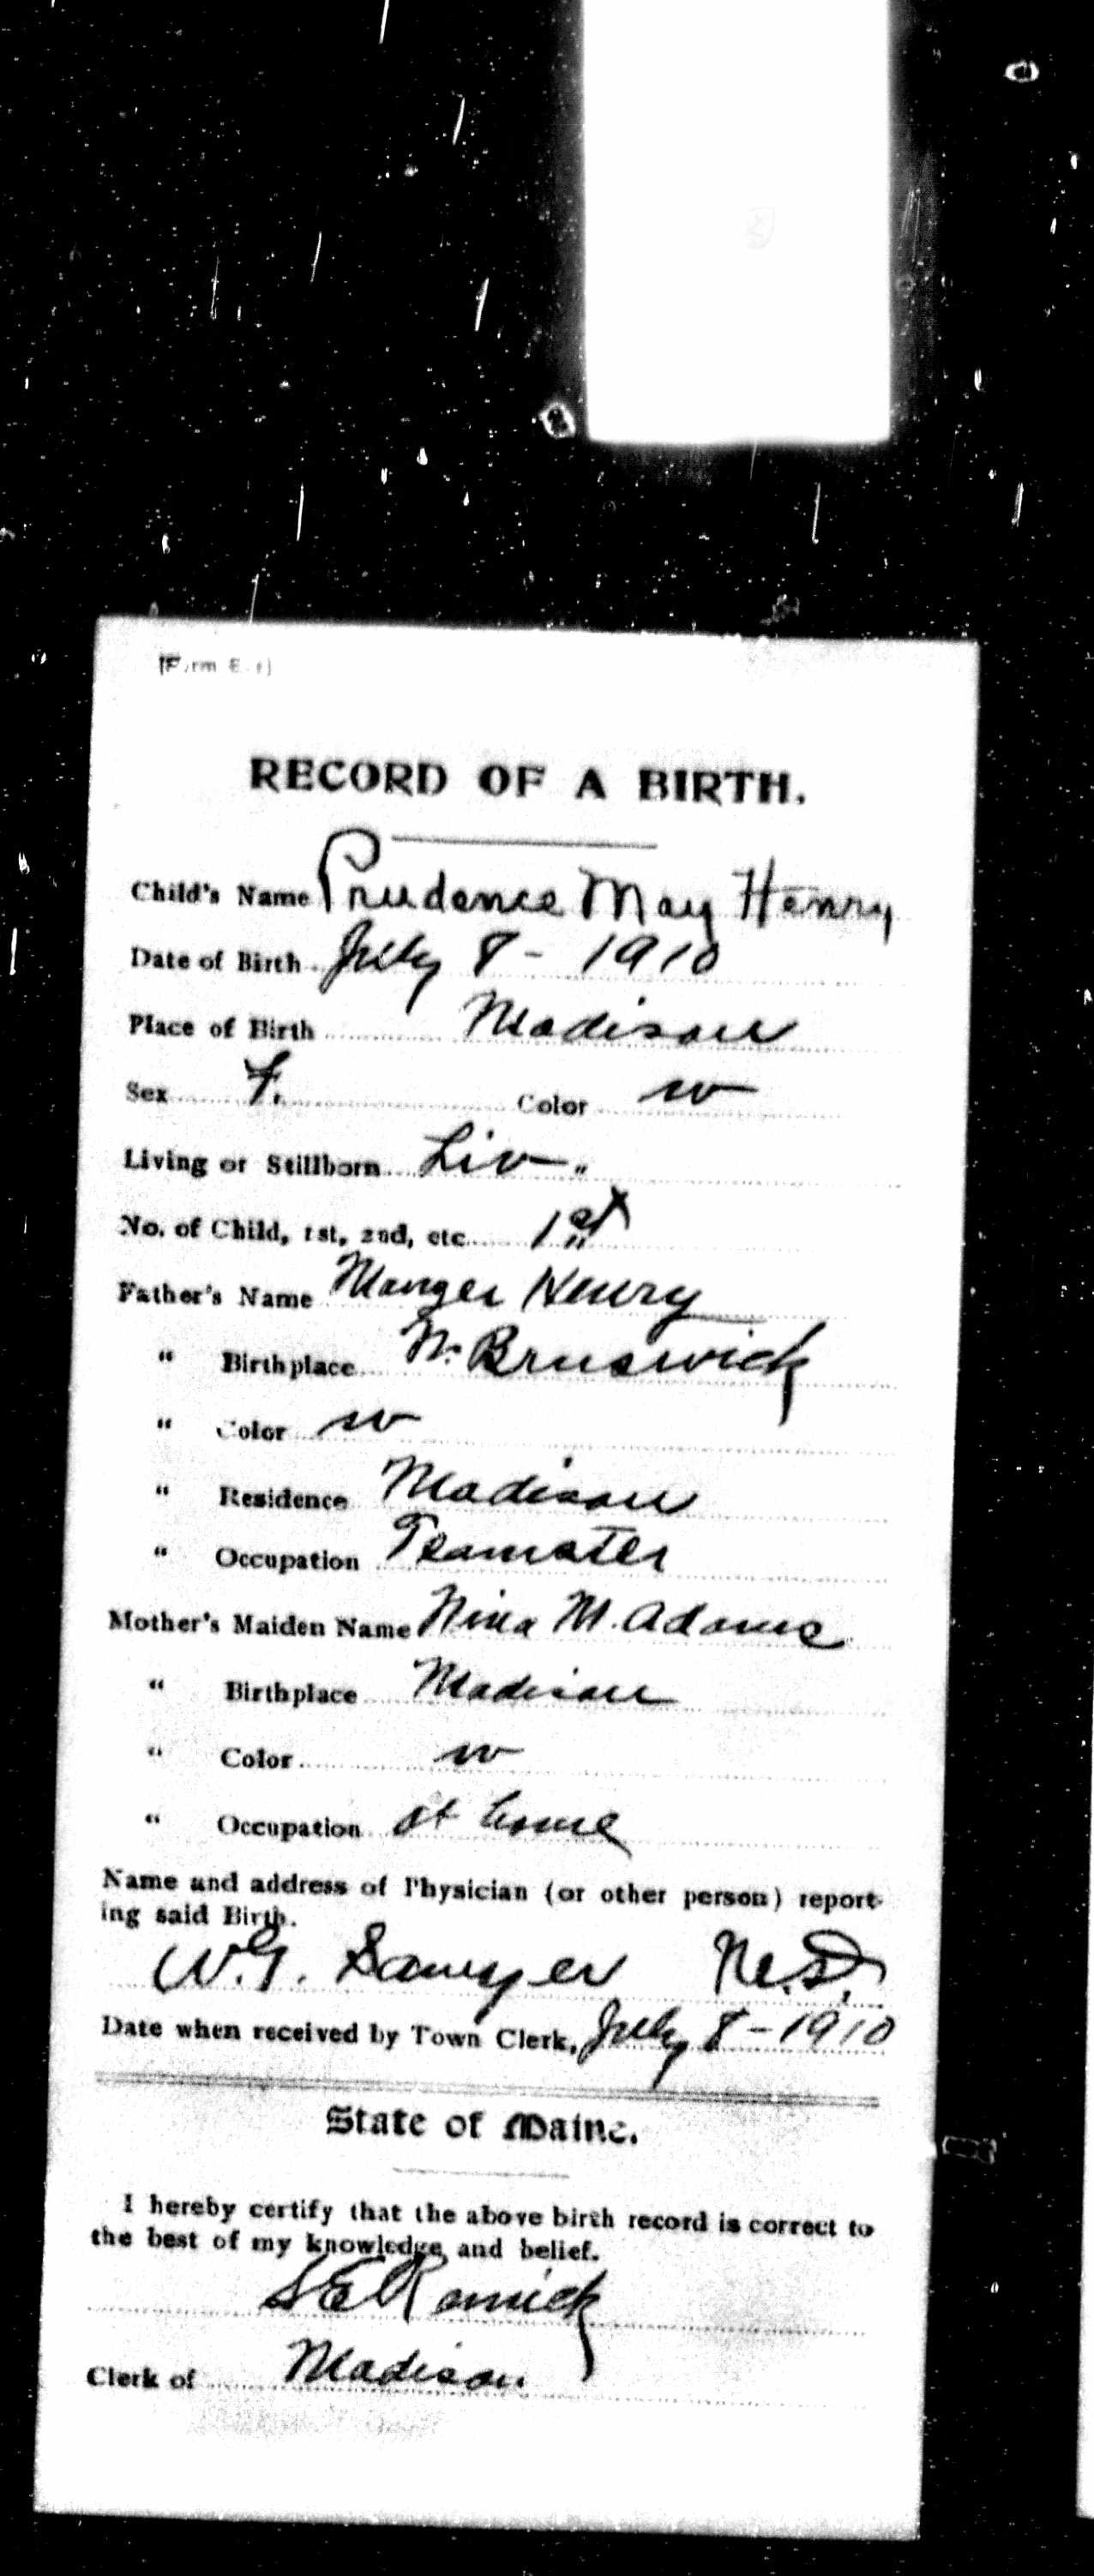 RECORD OF A BIRTH.
Child's Name Prudence May Henry
Date of Birth July 8 - 1910
Place of Birth Madison
Sex F. Color w
Living or Stillborn Liv.
No. of Child, 1st, 2nd, etc. 1st
Father's Name Henry
" Birthplace N. Brunswick
" Color w
" Residence Madison
" Occupation Teamster
Mother's Maiden Name Nina M. Adams
" Birthplace Madison
" Color w
" Occupation at home
Name and address of Physician (or other person) report-
ing said Birth.
W.G. Sawyer M.D.
Date when received by Town Clerk, July 8 - 1910
State of Maine.
I hereby certify that the above birth record is correct to
the best of my knowledge and belief.
Clerk of Madison